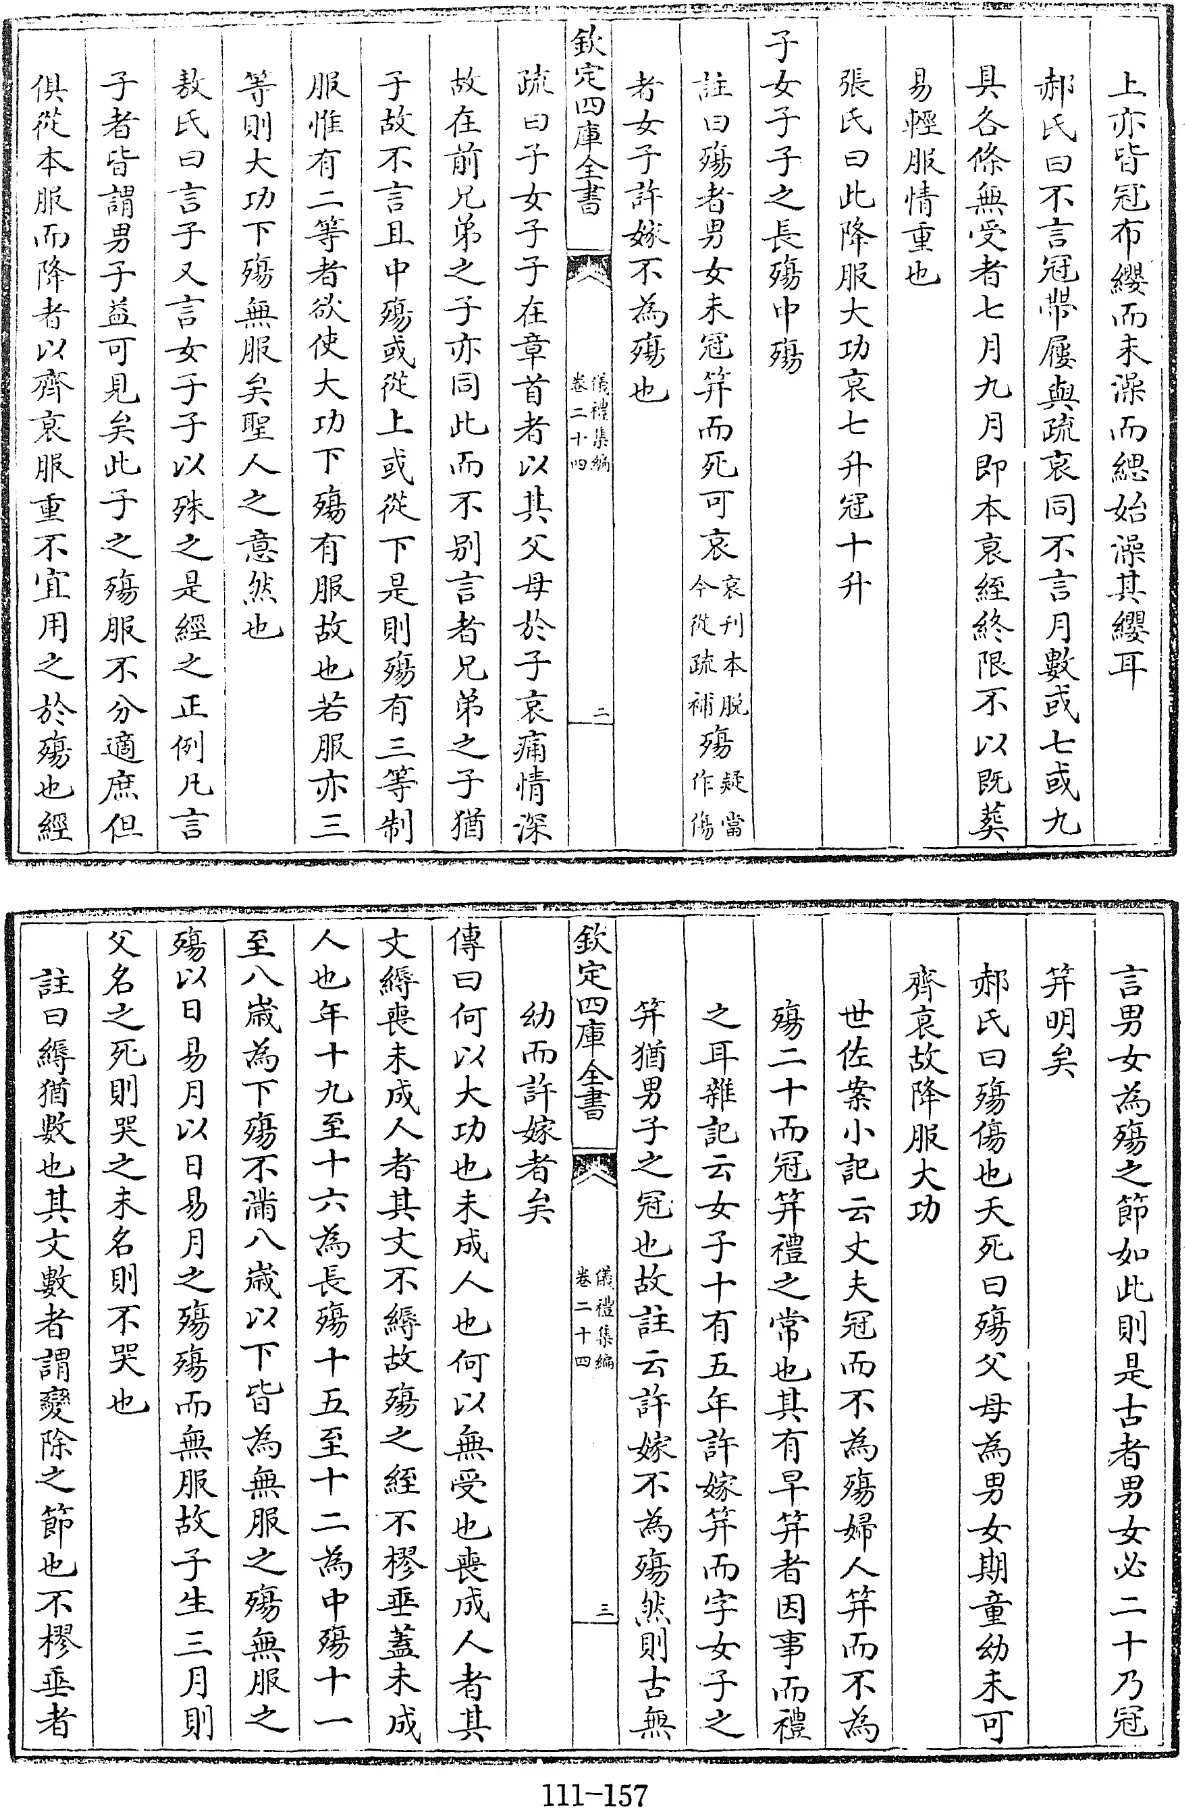 上亦皆冠布纓而未澡而緦始澡其纓耳
郝氏曰不言冠帶屨與疏衰同不言月數或七或九
具各條無受者七月九月即本衰絰終限不以既葬
易輕服情重也
張氏曰此降服大功衰七升冠十升
子女子子之長殤中殤
註曰殤者男女未冠笄而死可哀哀刋本脱今從疏補殤疑當作傷
者女子許嫁不為殤也
欽定四庫全書 儀禮集編 卷二十四 二
疏曰子女子子在章首者以其父母於子哀痛情深
故在前兄弟之子亦同此而不别言者兄弟之子猶
子故不言且中殤或從上或從下是則殤有三等制
服惟有二等者欲使大功下殤有服故也若服亦三
等則大功下殤無服矣聖人之意然也
敖氏曰言子又言女子子以殊之是經之正例凡言
子者皆謂男子益可見矣此子之殤服不分適庶但
俱從本服而降者以齊衰服重不宜用之於殤也經
言男女為殤之節如此則是古者男女必二十乃冠
笄明矣
郝氏曰殤傷也夭死曰殤父母為男女期童幼未可
齊衰故降服大功
世佐案小記云丈夫冠而不為殤婦人笄而不為
殤二十而冠笄禮之常也其有早笄者因事而禮
之耳雜記云女子十有五年許嫁笄而字女子之
笄猶男子之冠也故註云許嫁不為殤然則古無
欽定四庫全書 儀禮集編 卷二十四 三
幼而許嫁者矣
傳曰何以大功也未成人也何以無受也喪成人者其
文縟喪未成人者其文不縟故殤之絰不樛垂蓋未成
人也年十九至十六為長殤十五至十二為中殤十一
至八歲為下殤不滿八歲以下皆為無服之殤無服之
殤以日易月以日易月之殤殤而無服故子生三月則
父名之死則哭之未名則不哭也
註曰縟猶數也其文數者謂變除之節也不樛垂者
111-157